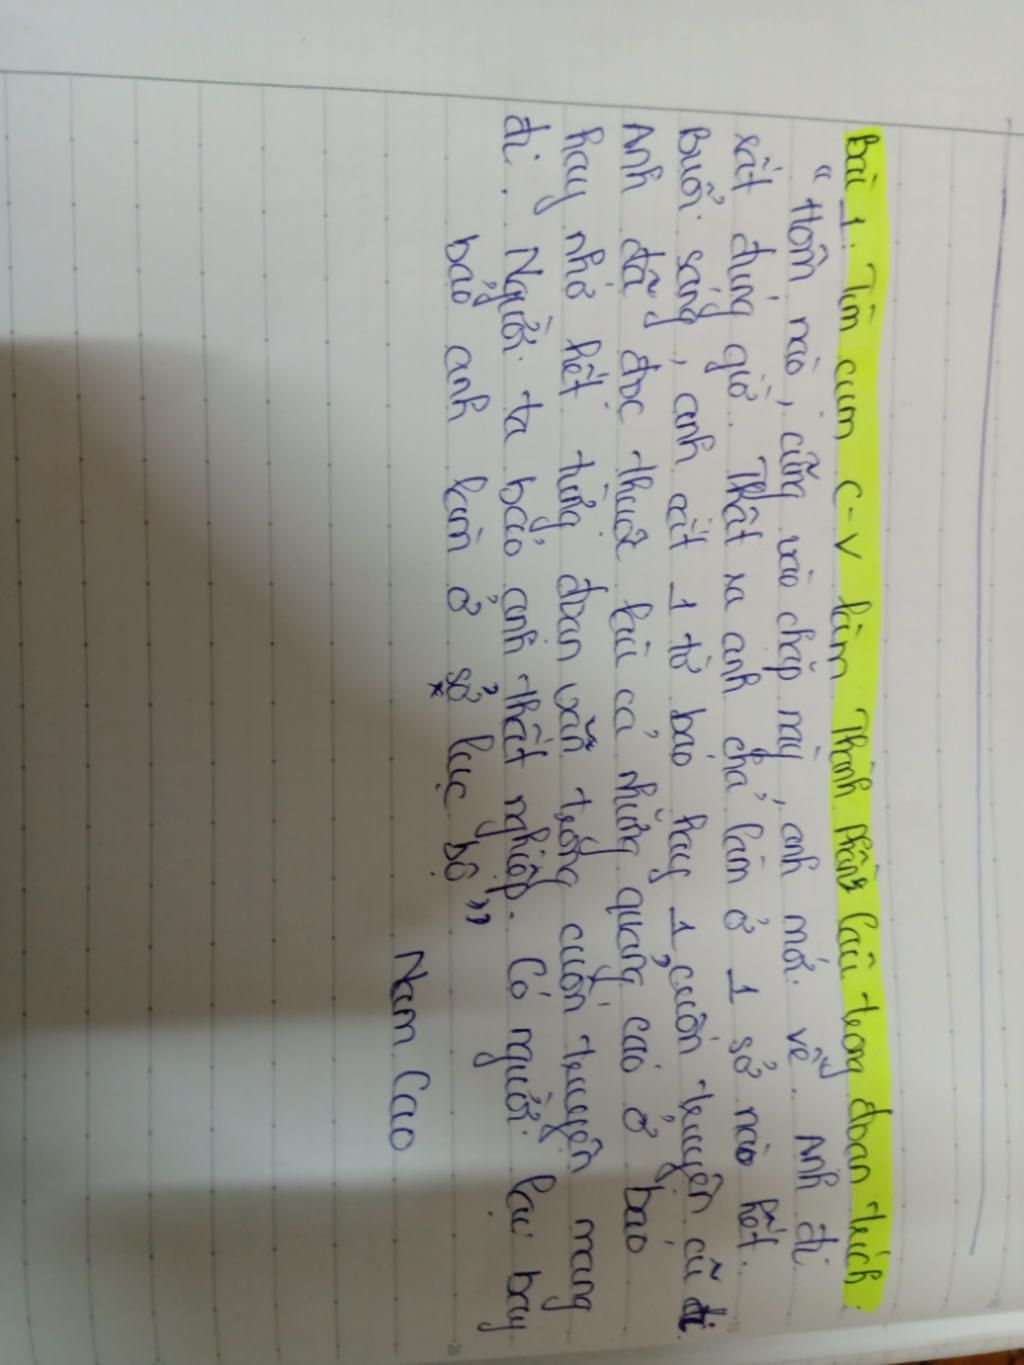 Bài 1. Tìm cụm C-V làm Thành phần câu trong đoạn trích.
" Hôm nào, cũng vào chập này, anh mới về. Anh đi
rất đúng giờ. Thật ra anh chả làm ở 1 sở nào hết.
Buổi sáng, anh cắt 1 tờ báo hay 1 cuốn truyện cũ đi.
Anh đã đọc thuộc làu cả những quảng cáo ở báo
hay nhớ hết từng đoạn văn trong cuốn truyện mang
đi. Người ta bảo anh thất nghiệp. Có người lại bay
bảo anh làm ở sở lục bộ"
*
Nam Cao